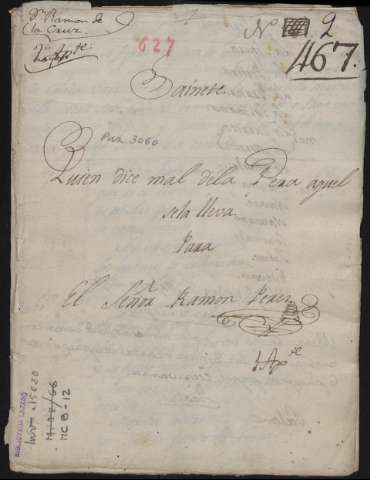 Dn. Ramon de
la Cruz.
2o. Apte.
627
No 2
467.
Sainete
Para 3060
Quien dice mal dela Pera aquel
sela lleva.
Para
El Señor Ramon Perez
1 Apte
BIBLIOTECA LAZARO
Inv. 15620
MC B-12